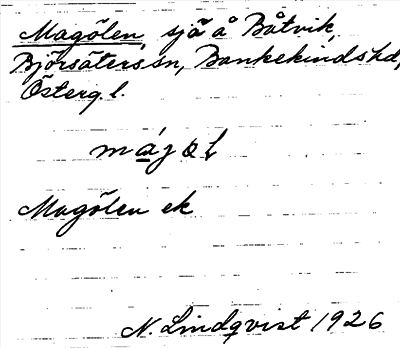 Magölen, sjö å Båtvik,
Björsäters sn, Bankekinds hd,
Österg. l.
Magölen ek
N. Lindqvist 1926